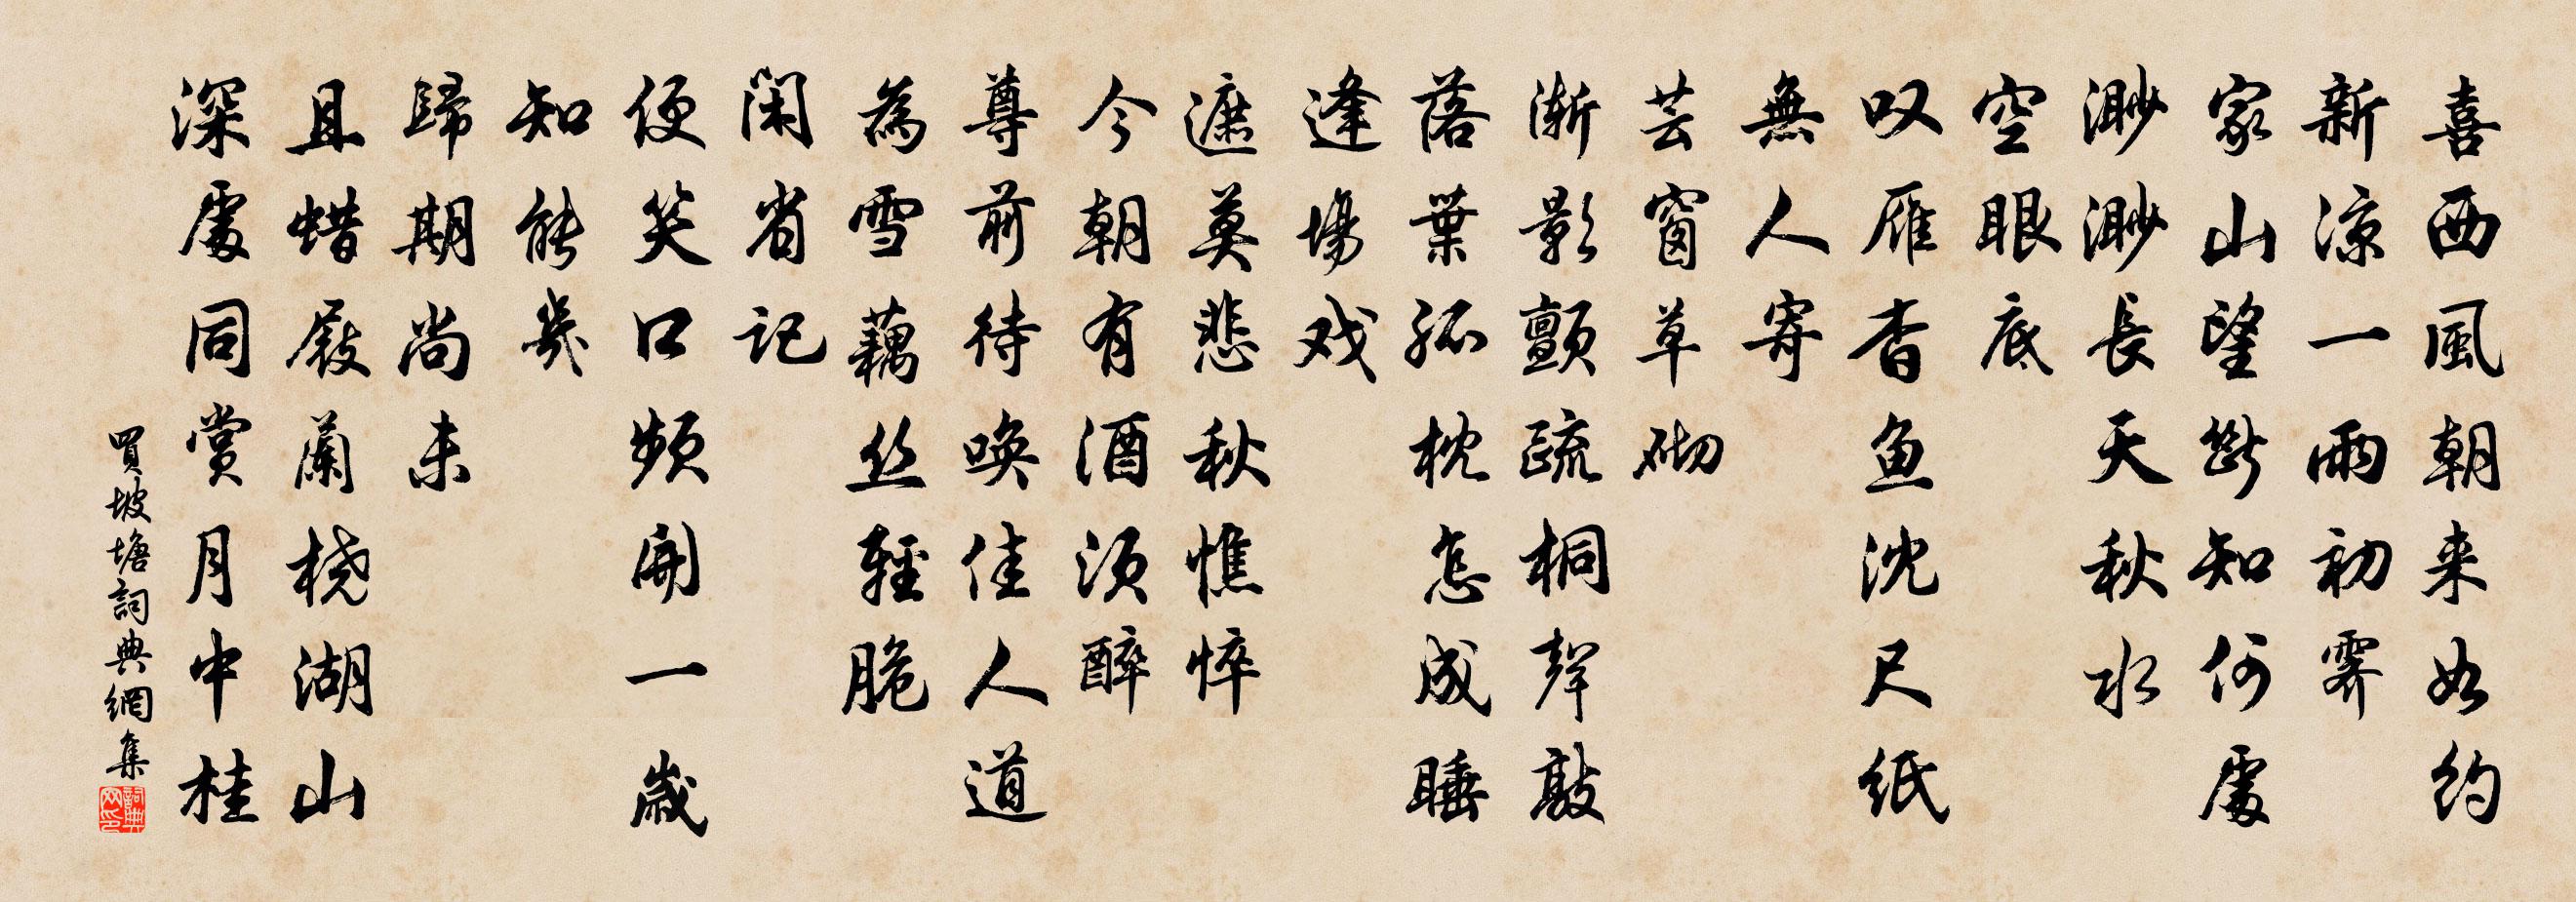 喜西風朝来如約
新涼一雨初霽
家山望斷知何處
渺渺長天秋水
空眼底
叹雁杳魚沈尺紙
無人寄
芸窗草砌
漸影顫疏桐聲敲
落葉孤枕怎成睡
逢場戏
遮莫悲秋憔悴
今朝有酒須醉
尊前待喚佳人道
為雪藕丝輕脆
閑省記
便笑口頻開一歲
知能幾
歸期尚未
且蜡屐蘭橈湖山
深處同賞月中桂
買坡塘詞典網集
詞典网印